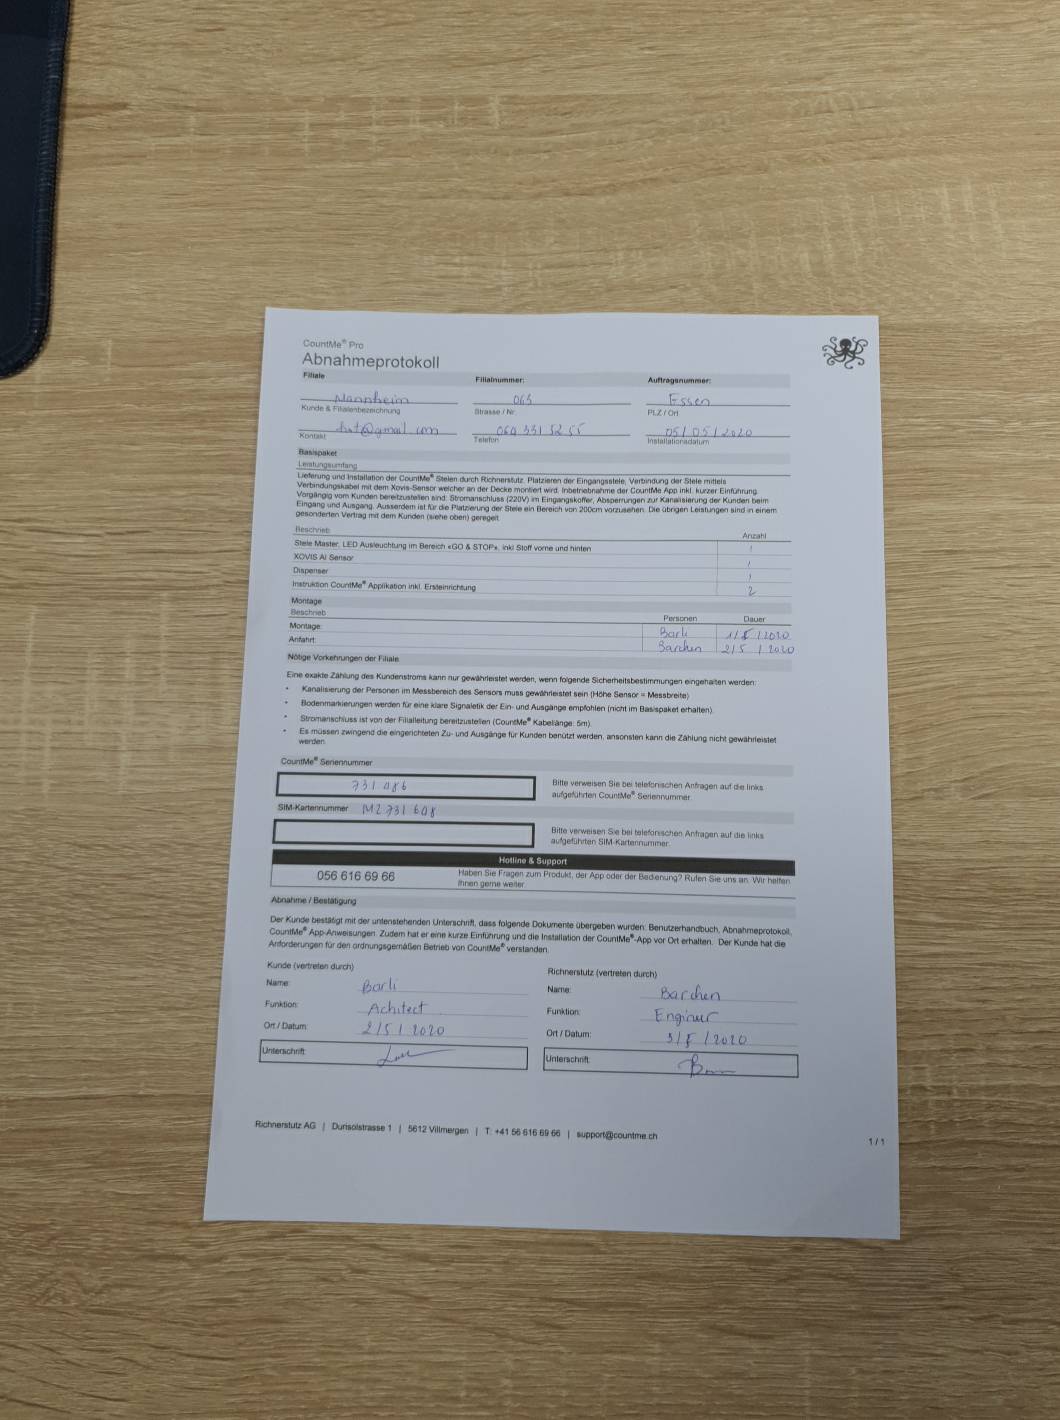 CountMe® Pro
Abnahmeprotokoll
Filiale Filialnummer: Auftragsnummer:
Mannheim 065 Essen
Kunde & Filialenbezeichnung Strasse / Nr. PLZ / Ort
@gmail com 05/05/2020
Kontakt Telefon Installationsdatum
Basispaket
Leistungsumfang
Lieferung und Installation der CountMe® Stelen durch Richnerstutz. Platzieren der Eingangsstele, Verbindung der Stele mittels
Verbindungskabel mit dem Xovis-Sensor welcher an der Decke montiert wird. Inbetriebnahme der CountMe App inkl. kurzer Einführung.
Vorgängig vom Kunden bereitzustellen sind: Stromanschluss (220V) im Eingangskoffer, Absperrungen zur Kanalisierung der Kunden beim
Eingang und Ausgang. Ausserdem ist für die Platzierung der Stele ein Bereich von 200cm vorzusehen. Die übrigen Leistungen sind in einem
gesonderten Vertrag mit dem Kunden (siehe oben) geregelt.
Beschrieb Anzahl
Stele Master, LED Ausleuchtung im Bereich «GO & STOP», inkl Stoff vorne und hinten 1
XOVIS AI Sensor 1
Dispenser 1
Instruktion CountMe® Applikation inkl. Ersteinrichtung 2
Montage
Beschrieb Personen Dauer
Montage: Barli 1/5/2020
Anfahrt: Barchen 2/5/2020
Nötige Vorkehrungen der Filiale
Eine exakte Zählung des Kundenstroms kann nur gewährleistet werden, wenn folgende Sicherheitsbestimmungen eingehalten werden:
• Kanalisierung der Personen im Messbereich des Sensors muss gewährleistet sein (Höhe Sensor = Messbreite)
• Bodenmarkierungen werden für eine klare Signaletik der Ein- und Ausgänge empfohlen (nicht im Basispaket erhalten).
• Stromanschluss ist von der Filialleitung bereitzustellen (CountMe® Kabellänge: 5m).
• Es müssen zwingend die eingerichteten Zu- und Ausgänge für Kunden benützt werden, ansonsten kann die Zählung nicht gewährleistet
werden.
CountMe® Seriennummer
731 086 Bitte verweisen Sie bei telefonischen Anfragen auf die links
aufgeführten CountMe® Seriennummer.
SIM-Kartennummer M2 731 608
Bitte verweisen Sie bei telefonischen Anfragen auf die links
aufgeführten SIM-Kartennummer.
Hotline & Support
056 616 69 66 Haben Sie Fragen zum Produkt, der App oder der Bedienung? Rufen Sie uns an. Wir helfen
Ihnen gerne weiter.
Abnahme / Bestätigung
Der Kunde bestätigt mit der untenstehenden Unterschrift, dass folgende Dokumente übergeben wurden: Benutzerhandbuch, Abnahmeprotokoll,
CountMe® App-Anweisungen. Zudem hat er eine kurze Einführung und die Installation der CountMe®-App vor Ort erhalten. Der Kunde hat die
Anforderungen für den ordnungsgemäßen Betrieb von CountMe® verstanden.
Kunde (vertreten durch) Richnerstutz (vertreten durch)
Name: Barli Name: Barchen
Funktion: Achitect Funktion: Enginur
Ort / Datum: 2/5/2020 Ort / Datum: 3/5/2020
Unterschrift: Unterschrift:
Richnerstutz AG | Durisolstrasse 1 | 5612 Villmergen | T: +41 56 616 69 66 | support@countme.ch
1 / 1